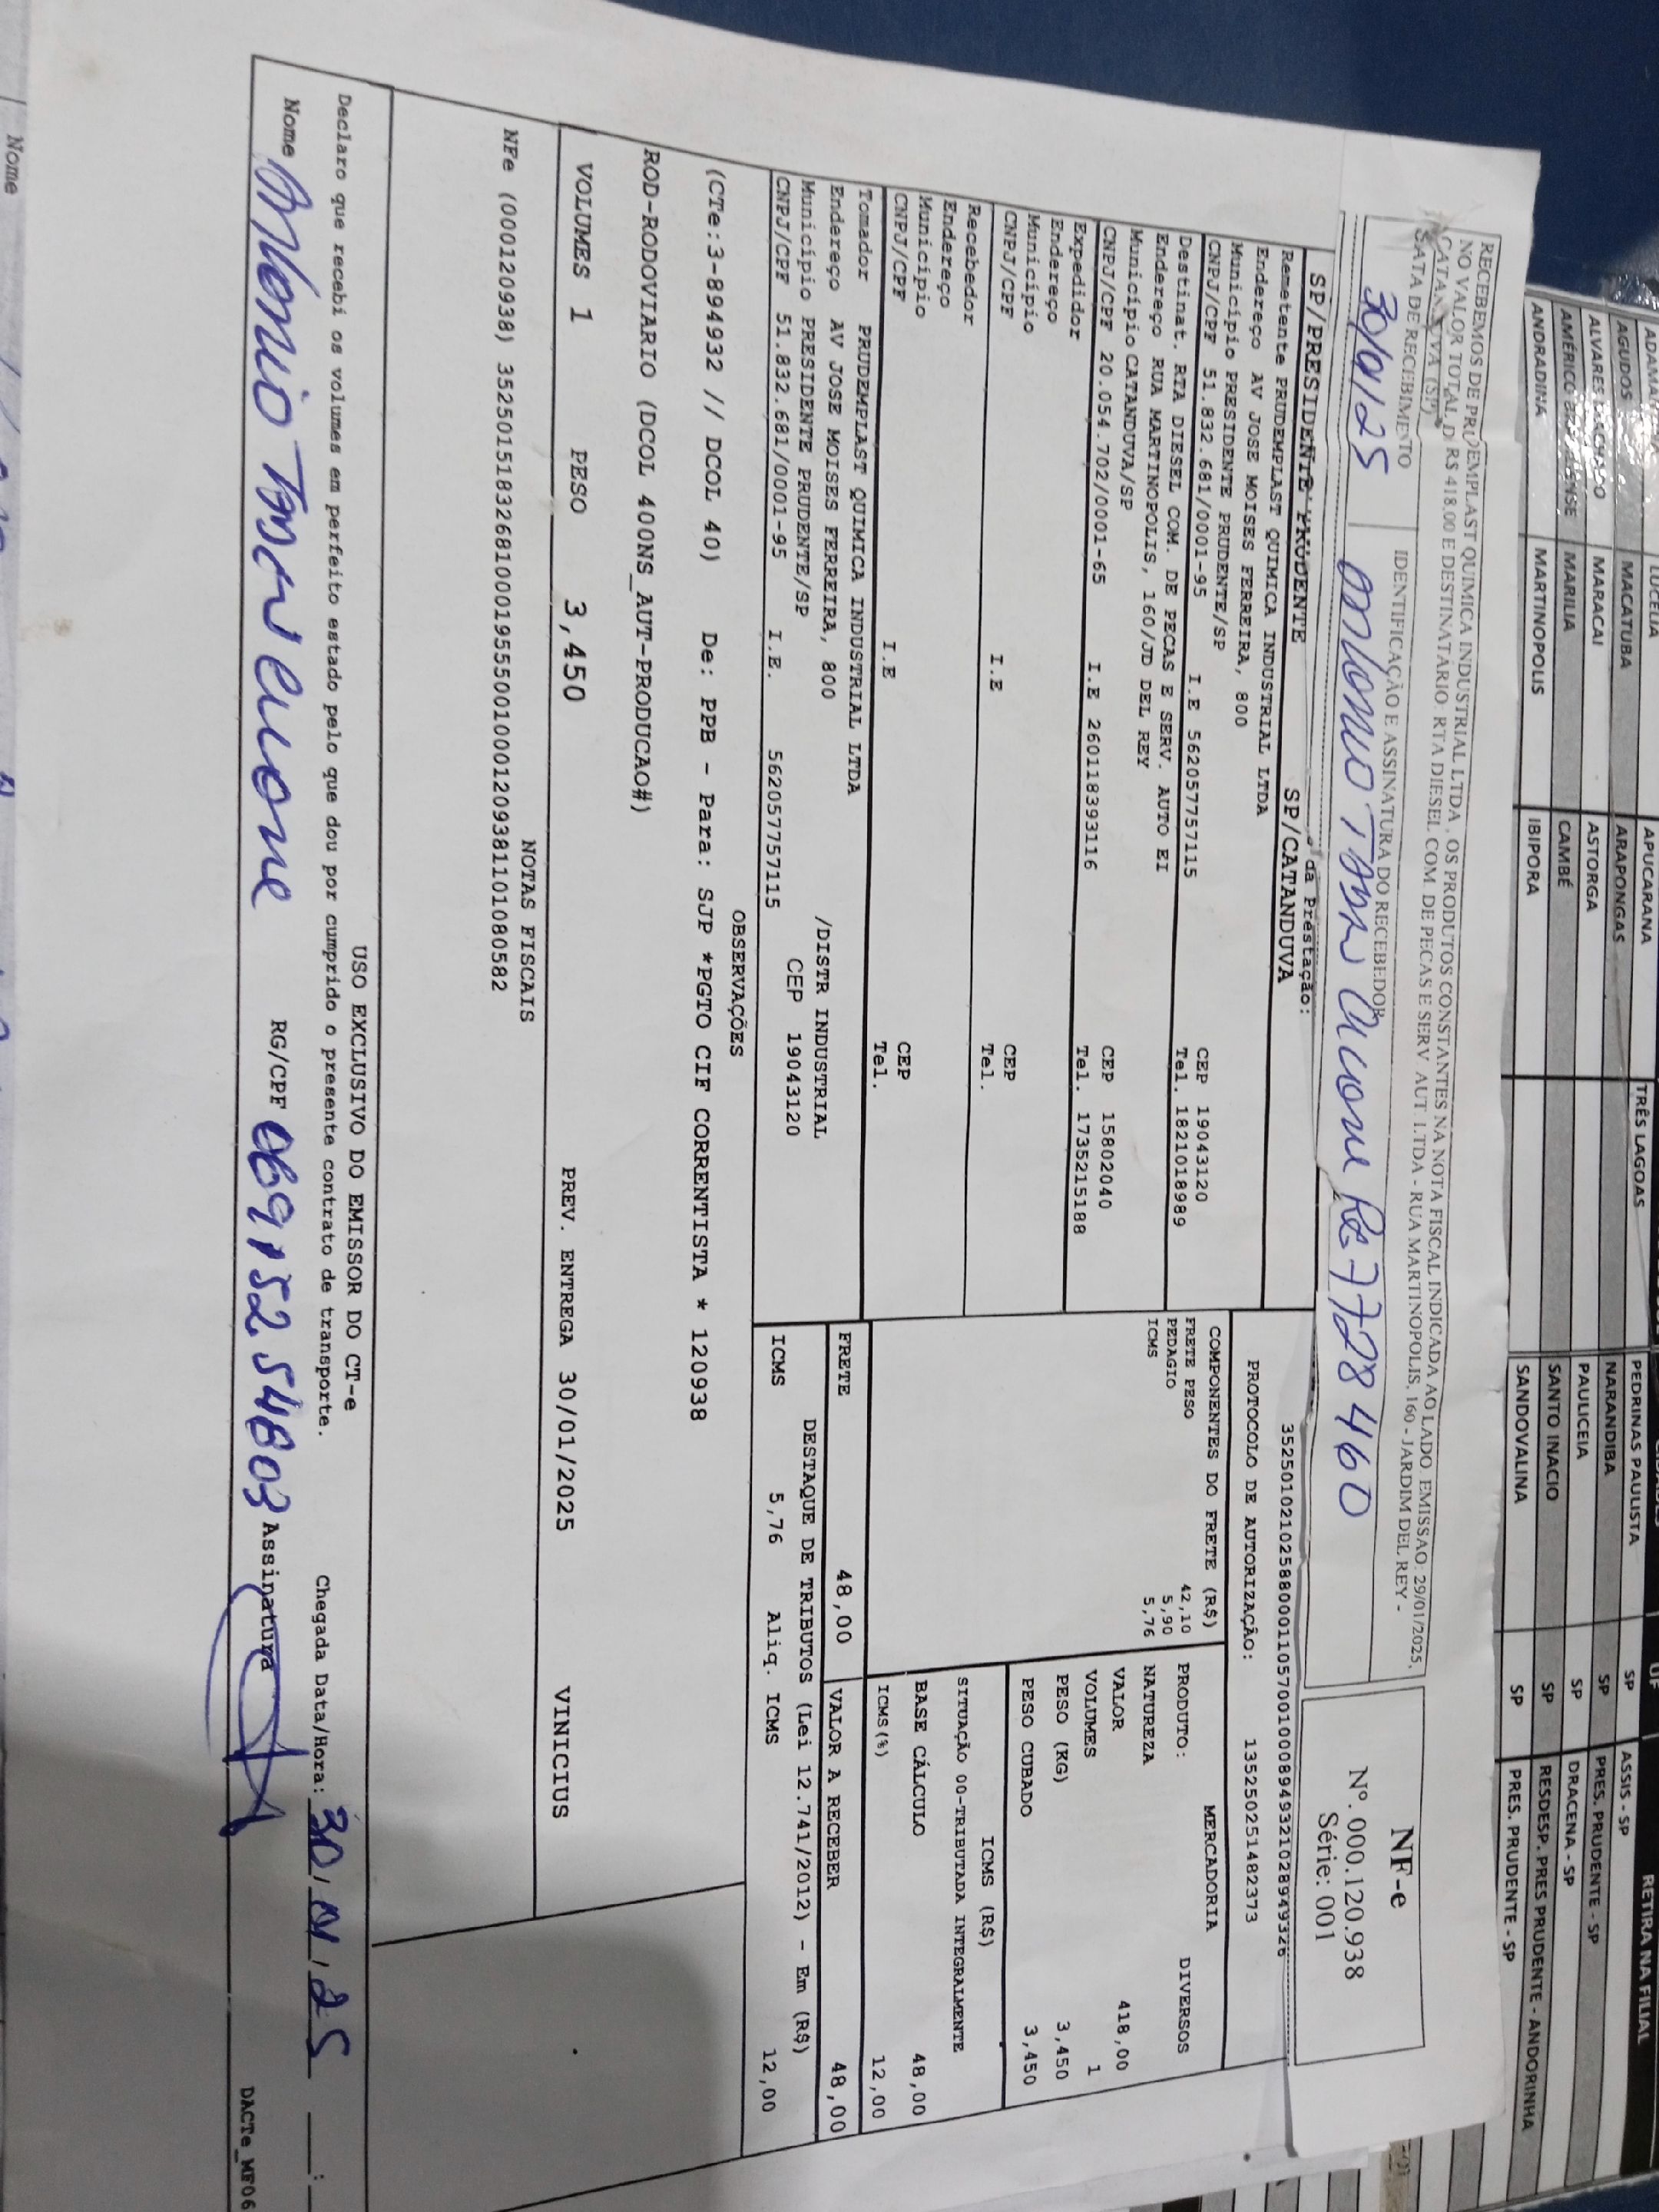 LUCELIA APUCARANA
AGUDOS MACATUBA ARAPONGAS TRÊS LAGOAS PEDRINAS PAULISTA SP ASSIS - SP RETIRA NA FILIAL
MARACAI ASTORGA NARANDIBA SP PRES. PRUDENTE - SP
MARILIA CAMBÉ PAULICEIA SP DRACENA - SP
ANDRADINA MARTINOPOLIS IBIPORA SANTO INACIO SP RESDESP. PRES PRUDENTE - ANDORINHA
SANDOVALINA SP PRES. PRUDENTE - SP
RECEBEMOS DE PRUDEMPLAST QUIMICA INDUSTRIAL LTDA , OS PRODUTOS CONSTANTES NA NOTA FISCAL INDICADA AO LADO. EMISSAO: 29/01/2025,
NO VALOR TOTAL D R$ 418,00 E DESTINATÁRIO: RTA DIESEL COM DE PECAS E SERV AUT LTDA - RUA MARTINOPOLIS, 160 - JARDIM DEL REY -
(SP)
DATA DE RECEBIMENTO IDENTIFICAÇÃO E ASSINATURA DO RECEBEDOR
30/01/25 Antonio 7728460
NF-e
Nº. 000.120.938
Série: 001
da Prestação:
SP/PRESIDENTE PRUDENTE SP/CATANDUVA
Remetente PRUDEMPLAST QUIMICA INDUSTRIAL LTDA
Endereço AV JOSE MOISES FERREIRA, 800
Município PRESIDENTE PRUDENTE/SP CEP 19043120
CNPJ/CPF 51.832.681/0001-95 I.E 562057757115 Tel. 1821018989
Destinat. RTA DIESEL COM. DE PECAS E SERV. AUTO EI
Endereço RUA MARTINOPOLIS, 160/JD DEL REY
Município CATANDUVA/SP CEP 15802040
CNPJ/CPF 20.054.702/0001-65 I.E 260118393116 Tel. 1735215188
Expedidor
Endereço
Município CEP
CNPJ/CPF I.E Tel.
Recebedor
Endereço
Município CEP
CNPJ/CPF I.E Tel.
Tomador PRUDEMPLAST QUIMICA INDUSTRIAL LTDA
Endereço AV JOSE MOISES FERREIRA, 800 /DISTR INDUSTRIAL
Município PRESIDENTE PRUDENTE/SP CEP 19043120
CNPJ/CPF 51.832.681/0001-95 I.E. 562057757115
35250102102588000110570010008949321028949326
PROTOCOLO DE AUTORIZAÇÃO: 135250251482373
COMPONENTES DO FRETE (R$)
FRETE PESO 42,10
PEDAGIO 5,90
ICMS 5,76
MERCADORIA
PRODUTO: DIVERSOS
NATUREZA
VALOR 418,00
VOLUMES 1
PESO (KG) 3,450
PESO CUBADO 3,450
ICMS (R$)
SITUAÇÃO 00-TRIBUTADA INTEGRALMENTE
BASE CÁLCULO 48,00
ICMS(%) 12,00
FRETE 48,00 VALOR A RECEBER 48,00
DESTAQUE DE TRIBUTOS (Lei 12.741/2012) - Em (R$)
ICMS 5,76 Aliq. ICMS 12,00
OBSERVAÇÕES
(CTe:3-894932 // DCOL 40) De: PPB - Para: SJP *PGTO CIF CORRENTISTA * 120938
ROD-RODOVIARIO (DCOL 400NS_AUT-PRODUCAO#)
VOLUMES 1 PESO 3,450 PREV. ENTREGA 30/01/2025 VINICIUS
NOTAS FISCAIS
NFe (000120938) 35250151832681000195550010001209381101080582
USO EXCLUSIVO DO EMISSOR DO CT-e
Declaro que recebi os volumes em perfeito estado pelo que dou por cumprido o presente contrato de transporte. Chegada Data/Hora: 30/01/25 __:
Nome Antonio RG/CPF 06915254803 Assinatura
DACTe_MF06
Nome